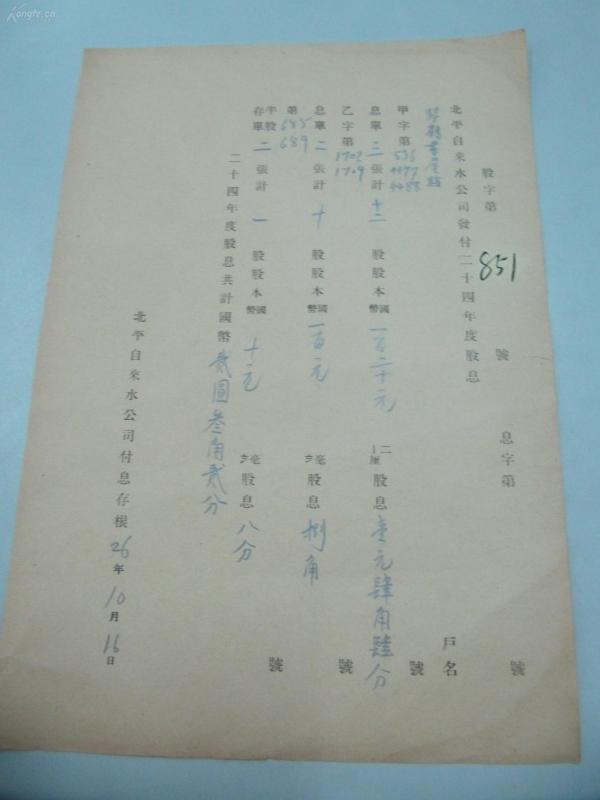 Kongfz.cn
股字第 851 號 息字第 號
北平自来水公司發付二十四年度股息
戶名
甲字第 536 4477 4488 號
息單 三 張計 十二 股股本國幣 一百二十元 二厘 股息 壹元肆角肆分
乙字第 1702 1709 號
息單 二 張計 十 股股本國幣 一百元 股息 捌角
第 685 689 號
半股存單 二 張計 一 股股本國幣 十元 股息 八分
二十四年度股息共計國幣 貳圓叁角貳分
北平自来水公司付息存根 26 年 10 月 16 日